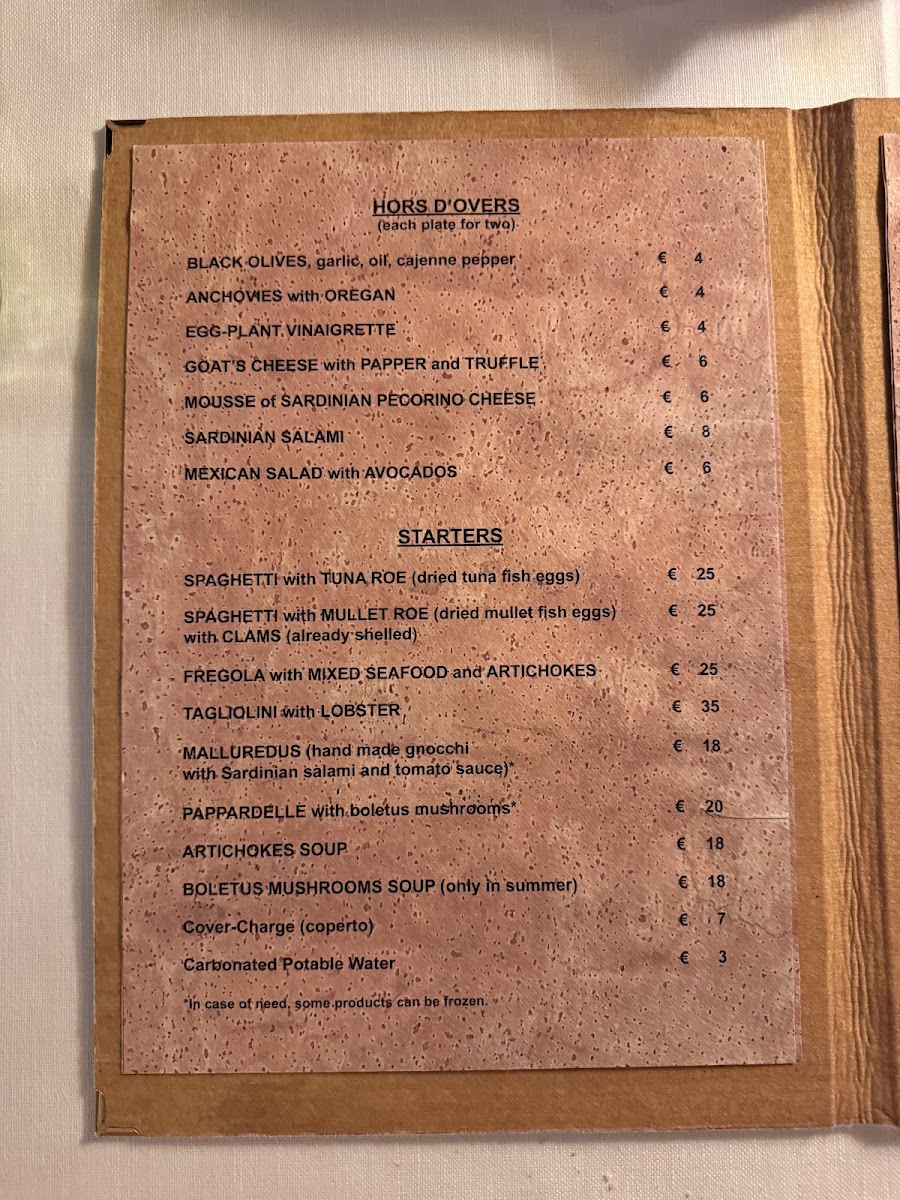 HORS D'OVERS
(each plate for two)
BLACK OLIVES, garlic, oil, cajenne pepper € 4
ANCHOVIES with OREGAN € 4
EGG-PLANT VINAIGRETTE € 4
GOAT'S CHEESE with PAPPER and TRUFFLE € 6
MOUSSE of SARDINIAN PECORINO CHEESE € 6
SARDINIAN SALAMI € 8
MEXICAN SALAD with AVOCADOS € 6
STARTERS
SPAGHETTI with TUNA ROE (dried tuna fish eggs) € 25
SPAGHETTI with MULLET ROE (dried mullet fish eggs) € 25
with CLAMS (already shelled)
FREGOLA with MIXED SEAFOOD and ARTICHOKES € 25
TAGLIOLINI with LOBSTER € 35
MALLUREDUS (hand made gnocchi € 18
with Sardinian salami and tomato sauce)*
PAPPARDELLE with boletus mushrooms* € 20
ARTICHOKES SOUP € 18
BOLETUS MUSHROOMS SOUP (only in summer) € 18
Cover-Charge (coperto) € 7
Carbonated Potable Water € 3
*In case of need, some products can be frozen.